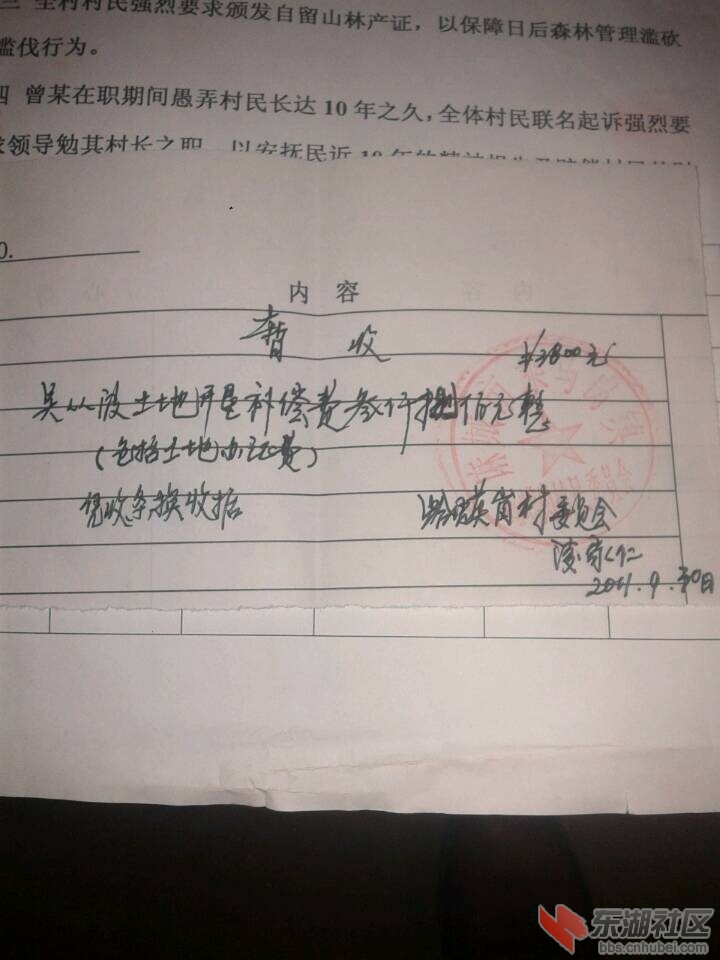 三 全村村民强烈要求颁发自留山林产证，以保障日后森林管理滥砍
滥伐行为。
四 曾某在职期间愚弄村民长达10年之久，全体村民联名起诉强烈要
求领导勉其村长之职，以安抚民近10年的精神损失及赔偿村民
0.
内 容
暂 收 ¥3800元
吴从波土地开垦补偿费叁仟捌佰元整
（包括土地办证费）
凭收条换收据 岗村委员会
2011.9.30日
东湖社区
bbs.cnhubei.com